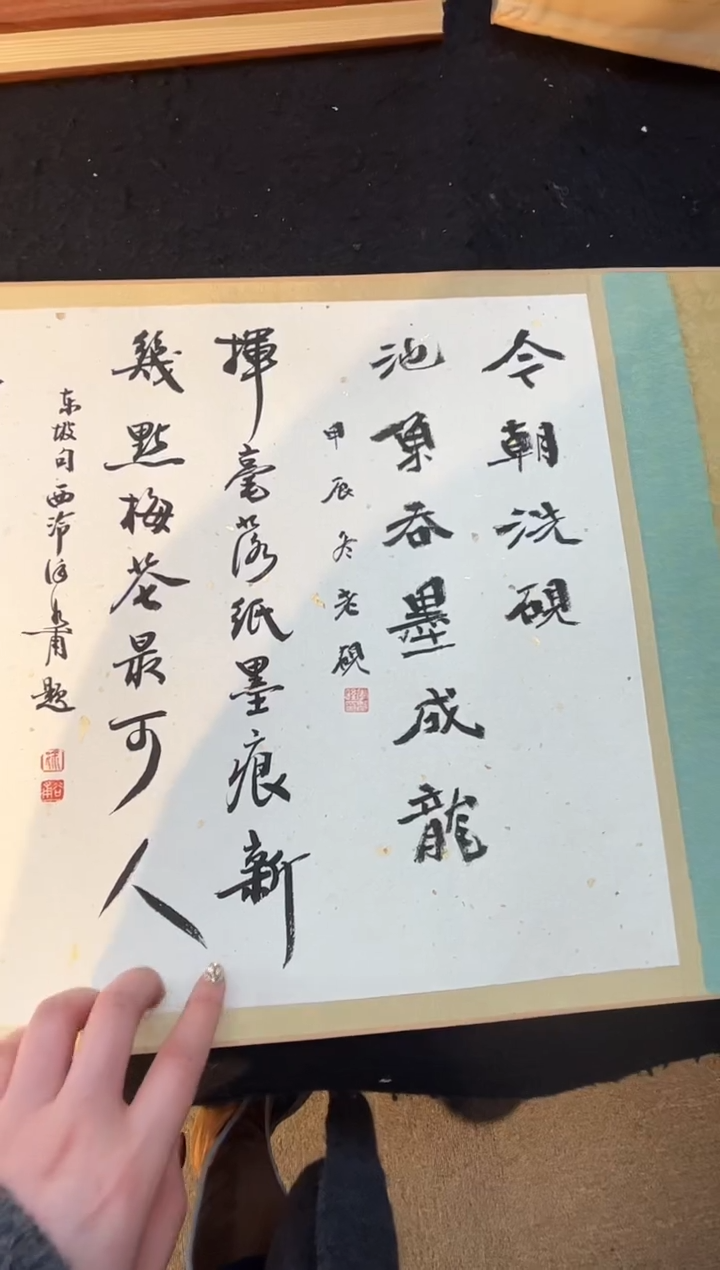 今朝洗硯
池魚吞墨成龍
甲辰冬老硯
揮毫落紙墨痕新
幾點梅花最可人
东坡句西泠徐谷甫題